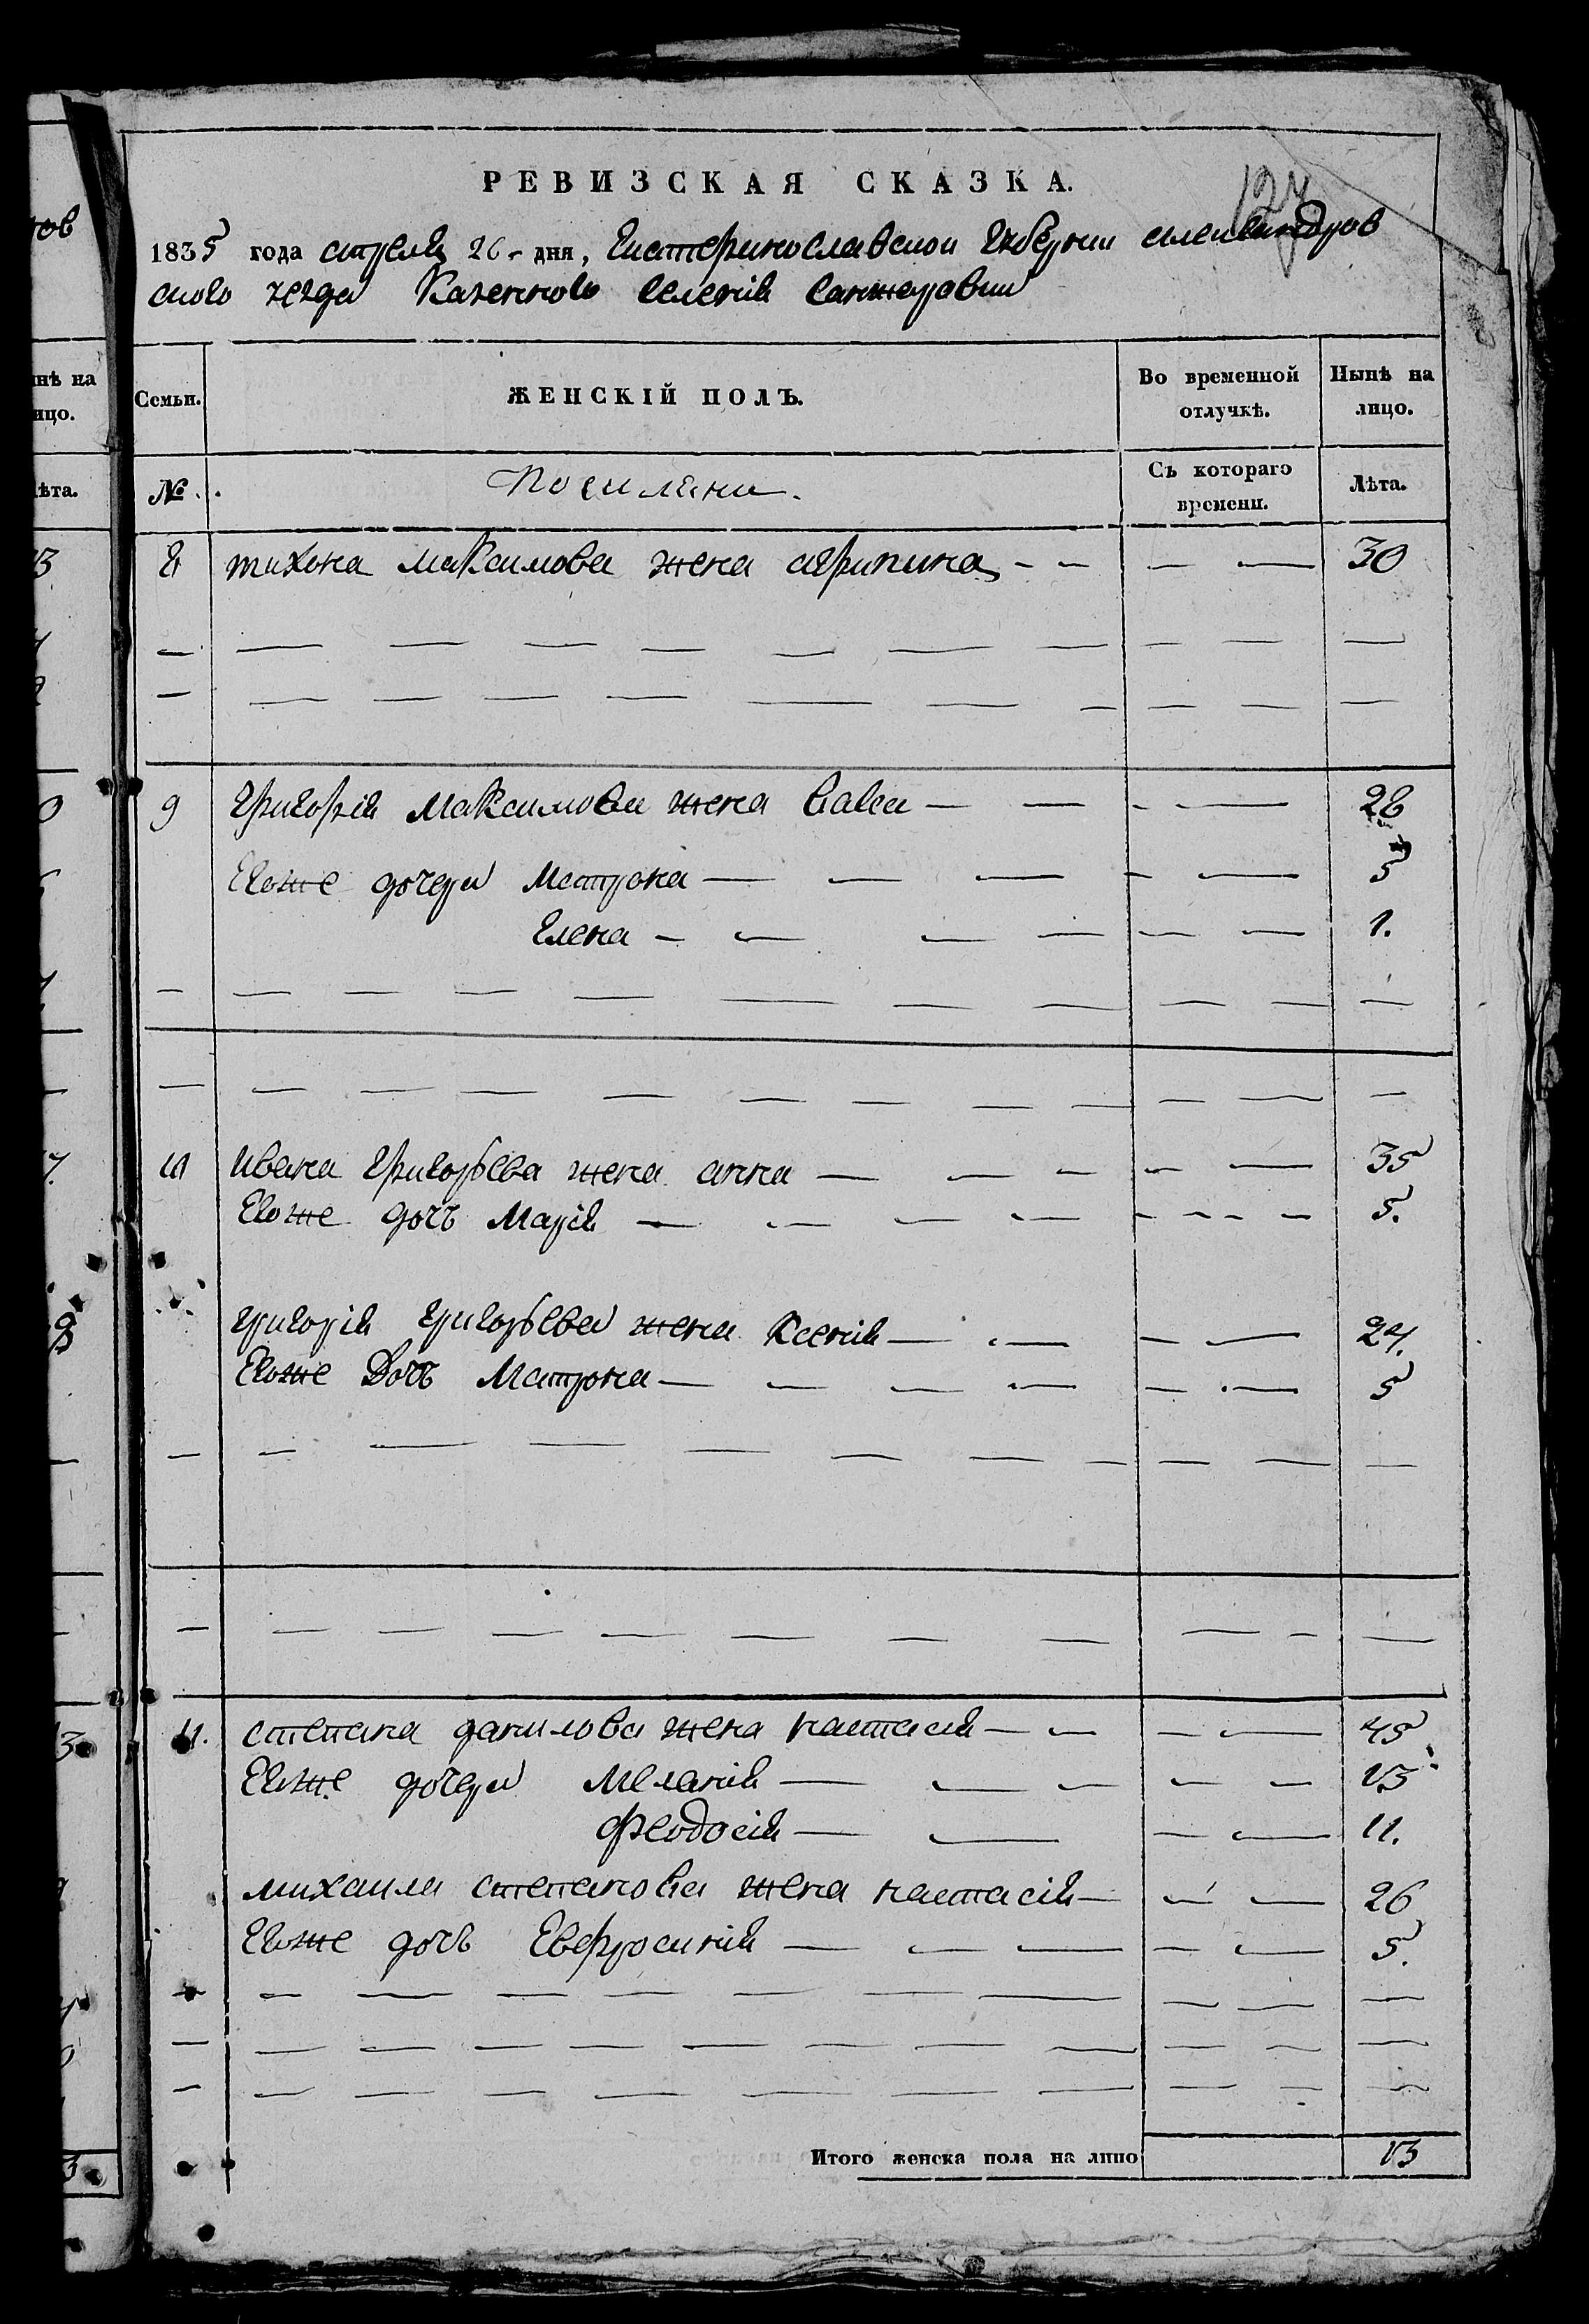 РЕВИЗСКАЯ СКАЗКА.
127
1835 года апреля 26 дня, Екатеринославской губернии александров
ского уезда Казенного селения санжаровки
Семьи.
ЖЕНСКІЙ ПОЛЪ.
Во временной отлучкѣ.
Нынѣ на лицо.
№.
Поселяне.
Съ котораго времени.
Лѣта.
8 тихона максимова жена агрипина 30
9 григорія максимова жена 28
Егоже дочери Матрона 5
Елена 1.
10 ивана григорьева жена анна 35
Егоже дочь Марія 5.
григорія григорьева жена Ксенія 24.
Егоже Дочь Матрона 5
11. степана данилова жена настасія 45
Егоже дочери Меланія 13
феодосія 11.
михаила степанова жена настасія 26
Егоже дочь Евфросинія 5.
Итого женска пола на лицо 13